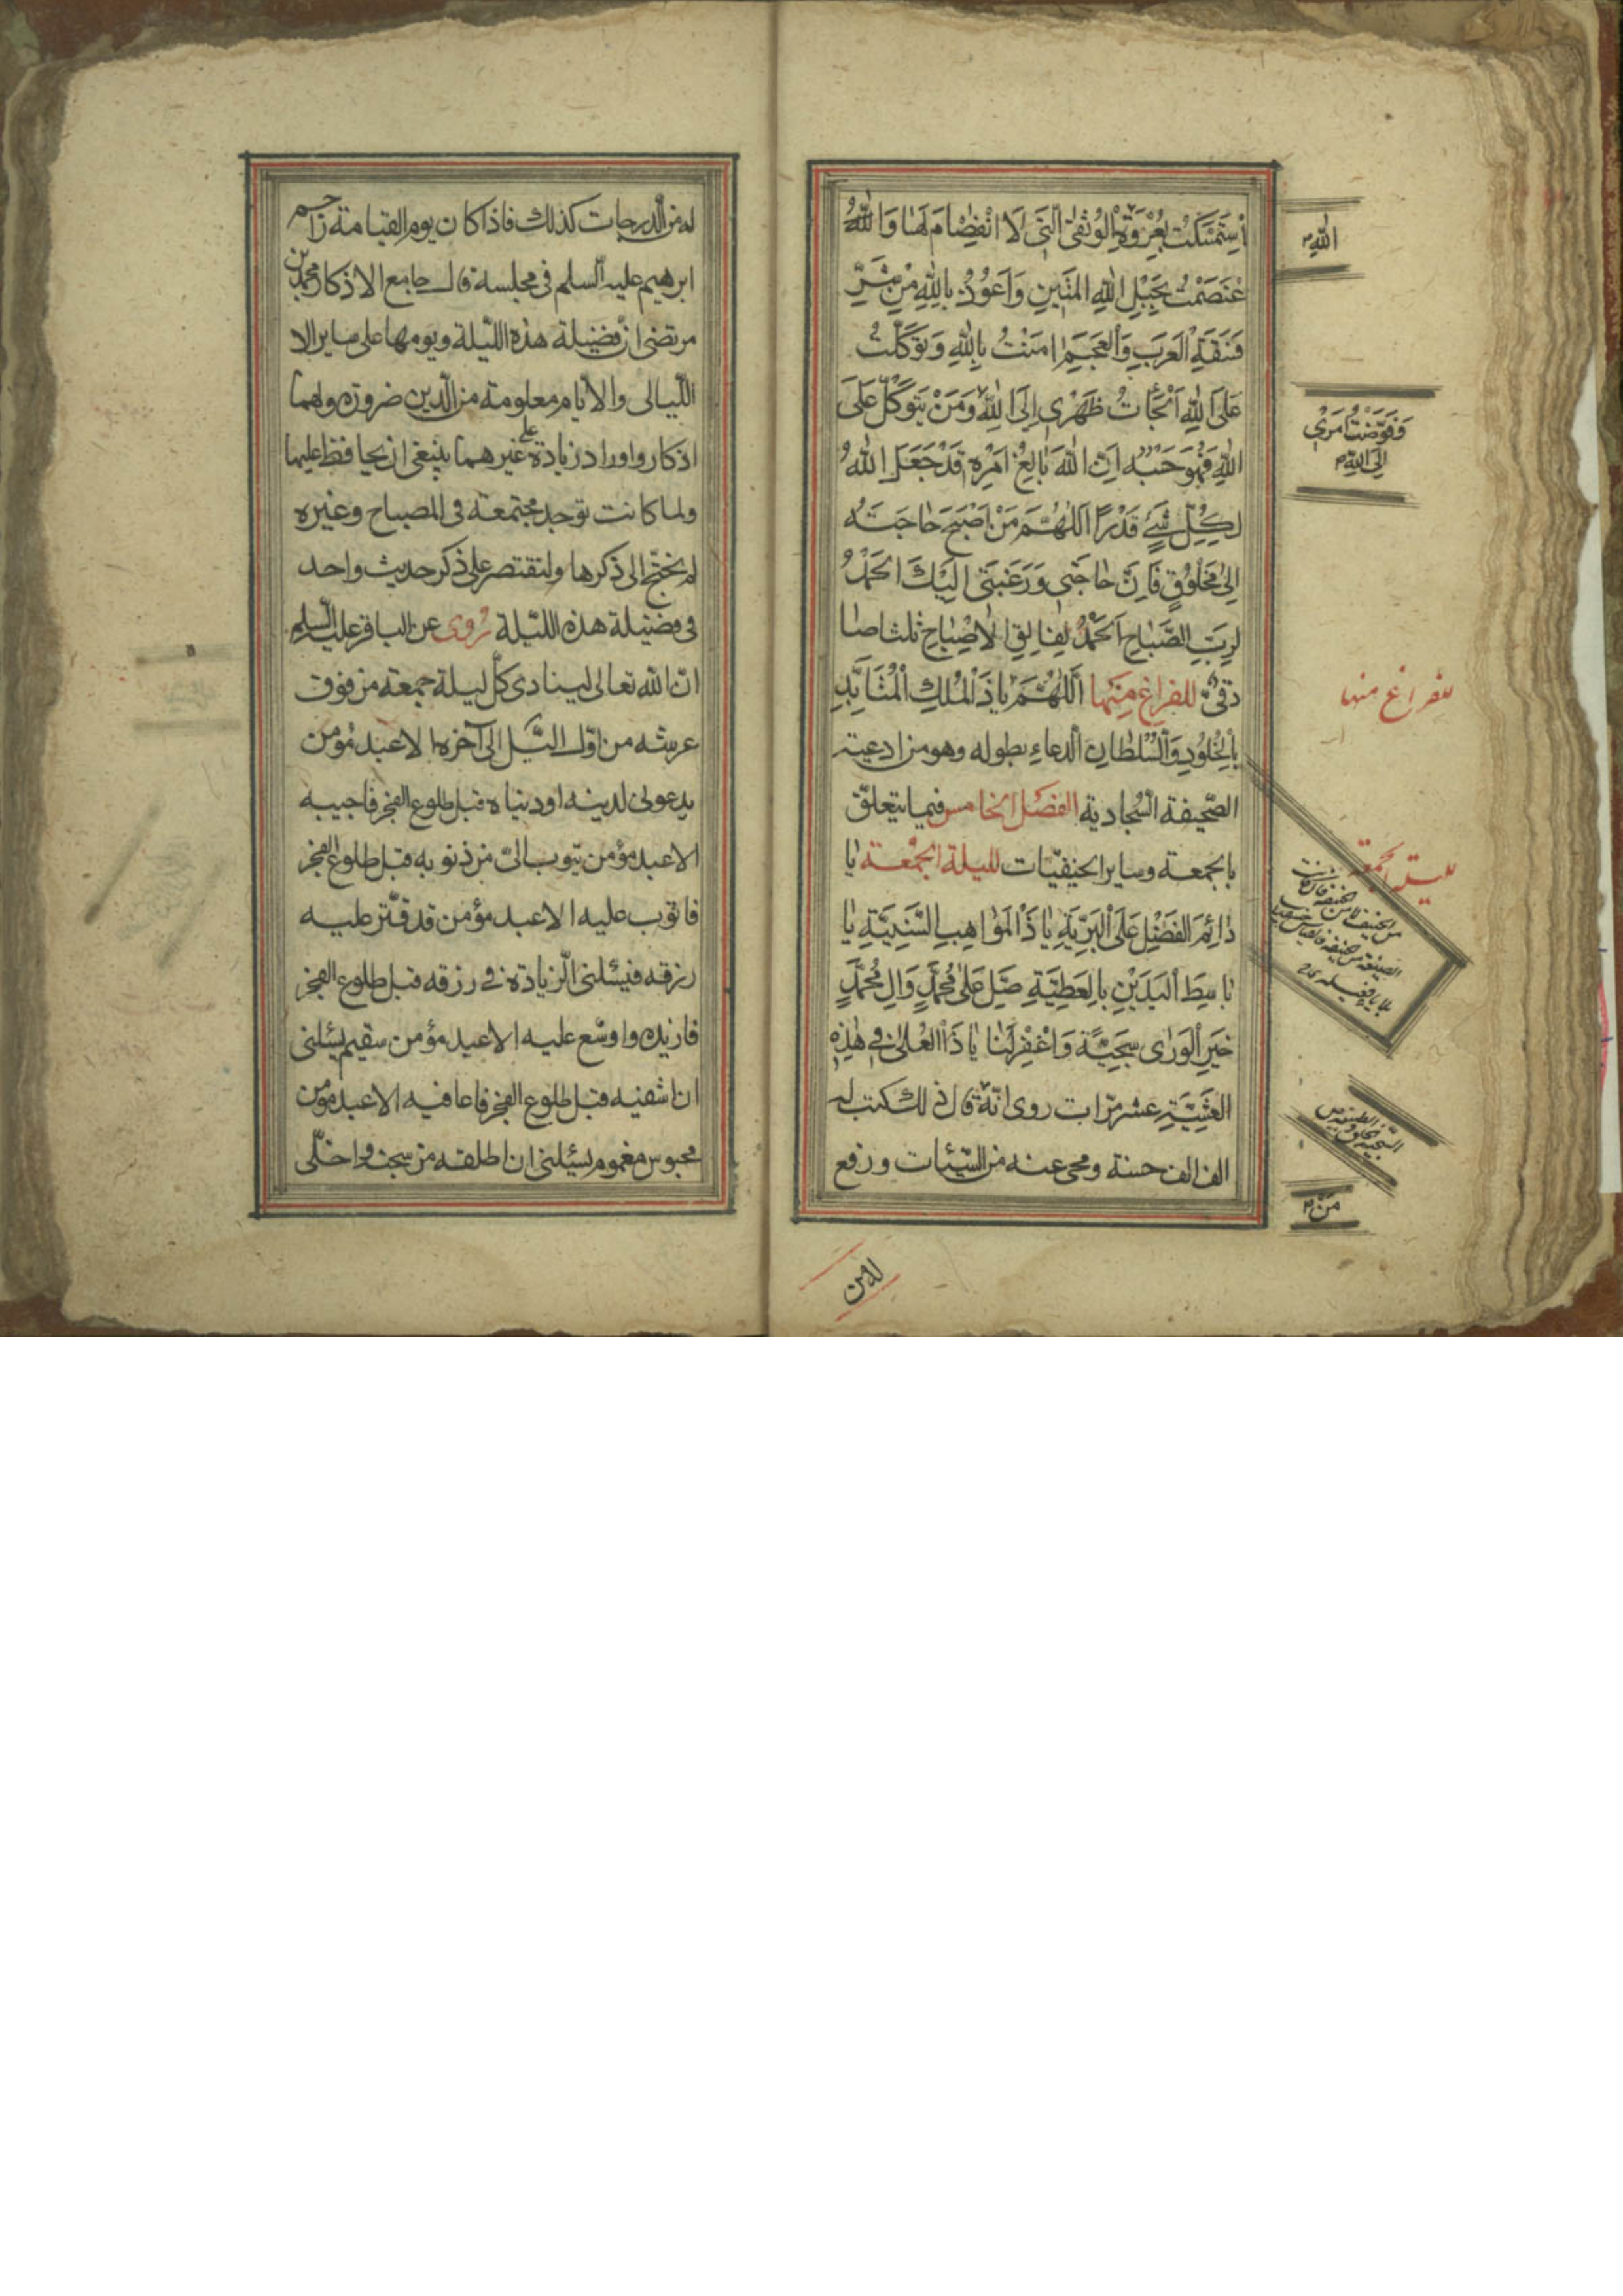 اِسْتَمْسَكْتُ بِعُرْوَةِ الْوُثْقىٰ الَّتى لَا انْفِصٰامَ لَهٰا وَاللّٰهُ
عْتَصَمْتُ بِحَبْلِ اللّٰهِ الْمَتينِ وَاَعُوذُ بِاللّٰهِ مِنْ شَرِّ
فَسَقَةِ الْعَرَبِ وَالْعَجَمِ امَنْتُ بِاللّٰهِ وَتَوَكَّلْتُ
عَلَى اللّٰهِ اَلْجَأْتُ ظَهْرى اِلَى اللّٰهِ وَمَنْ يَتَوَكَّلْ عَلَى
اللّٰهِ فَهُوَ حَسْبُه اِنَّ اللّٰهَ بٰالِغُ اَمْرِه قَدْ جَعَلَ اللّٰهُ
لِكُلِّ شَىْءٍ قَدْرًا اَللّٰهُمَّ مَنْ اَصْبَحَ حٰاجَتُهُ
اِلىٰ مَخْلُوقٍ فَاِنَّ حٰاجَتى وَرَغْبَتى اِلَيْكَ اَلْحَمْدُ
لِرَبِّ الصَّبٰاحِ اَلْحَمْدُ لِفٰالِقِ الْاِصْبٰاحِ ثلثا صا
دقىّ للفراغ مِنْها اَللّٰهُمَّ يٰا ذَا الْمُلْكِ الْمُتَاَبِّدِ
بِالْخُلُودِ وَالسُّلْطٰانِ الدعاء بطوله وهو من ادعية
الصّحيفة السّجادية الفصل الخامس فيما يتعلّق
بالجمعة وساير الحنيفيّات لليلة الجمعة يٰا
دٰائِمَ الْفَضْلِ عَلَى الْبَرِيَّةِ يٰا ذَا الْمَوٰاهِبِ السَّنِيَّةِ يٰا
بٰاسِطَ الْيَدَيْنِ بِالْعَطِيَّةِ صَلِّ عَلىٰ مُحَمَّدٍ وَالِ مُحَمَّدٍ
خَيْرِ الْوَرٰى سَجِيَّةً وَاغْفِرْ لَنٰا يٰا ذَا الْعُلىٰ فى هٰذِهِ
الْعَشِيَّةِ عشر مرّات روى انّه من قال ذلك كتب له
الف الف حسنة ومحى عنه من السّيّئات ورفع
اللّٰهِ
وَفَوَّضْتُ اَمْرى
اِلَى اللّٰهِ
للفراغ منها
لليلة الجمعة
مَنْ
له من
له من الدرجات كذلك فاذا كان يوم القيامة زاحم
ابرهيم عليه السلم فى مجلسه قال جامع الاذكار محمد بن
مرتضى انّ فضيلة هذه اللّيلة ويومها على ساير الا
اللّيالى والايام معلومة من الدّين ضرورة ولهما
اذكار واوراد زيادة على غيرهما ينبغى ان يحافظ عليها
ولما كانت توجد مجتمعة فى المصباح وغيره
لم نحتج الى ذكرها ولنقتصر على ذكر حديث واحد
فى فضيلة هذه اللّيلة رُوى عن الباقر عليه السّلم
انّ الله تعالى لينادى كلّ ليلة جمعة من فوق
عرشه من اوّل اللّيل الى آخره الا عبد مؤمن
يدعونى لدينه او دنياه قبل طلوع الفجر فاجيبه
الا عبد مؤمن يتوب الىّ من ذنوبه قبل طلوع الفجر
فاتوب عليه الا عبد مؤمن قد قتّر عليه
رزقه فيسئلنى الزيادة فى رزقه قبل طلوع الفجر
فازيده واوسّع عليه الا عبد مؤمن سقيم يسئلنى
ان اشفيه قبل طلوع الفجر فاعافيه الا عبد مؤمن
محبوس مغموم يسئلنى ان اطلقه من سجنه واخلّى